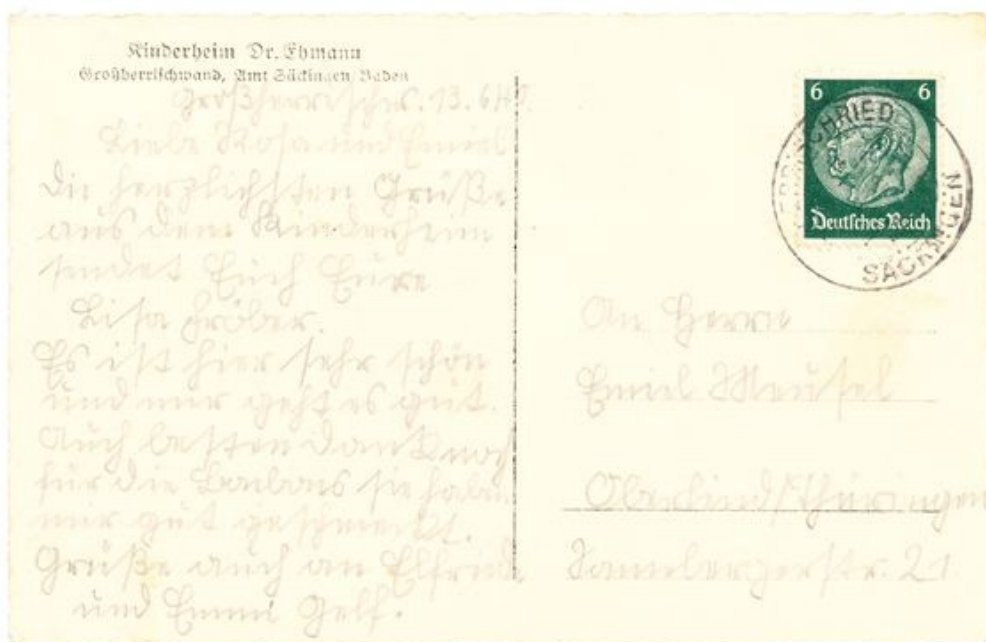 Kinderheim Dr. Ehmann
Großherrischwand, Amt Säckingen Baden
Liebe Rosa und Emiel
Die herzlichsten Grüße
aus dem Kinderheim
sendet Euch Eure
Lisa Fröber.
Es ist hier sehr schön
und mir geht es gut.
Auch besten Dank noch
für die Bonbons sie haben
mir gut geschmeckt.
Grüße auch an Elfriede
und Emmi
6 6
Deutsches Reich
SÄCKINGEN
An Herrn
Emiel Meusel
Oberlind/Thüringen
21.